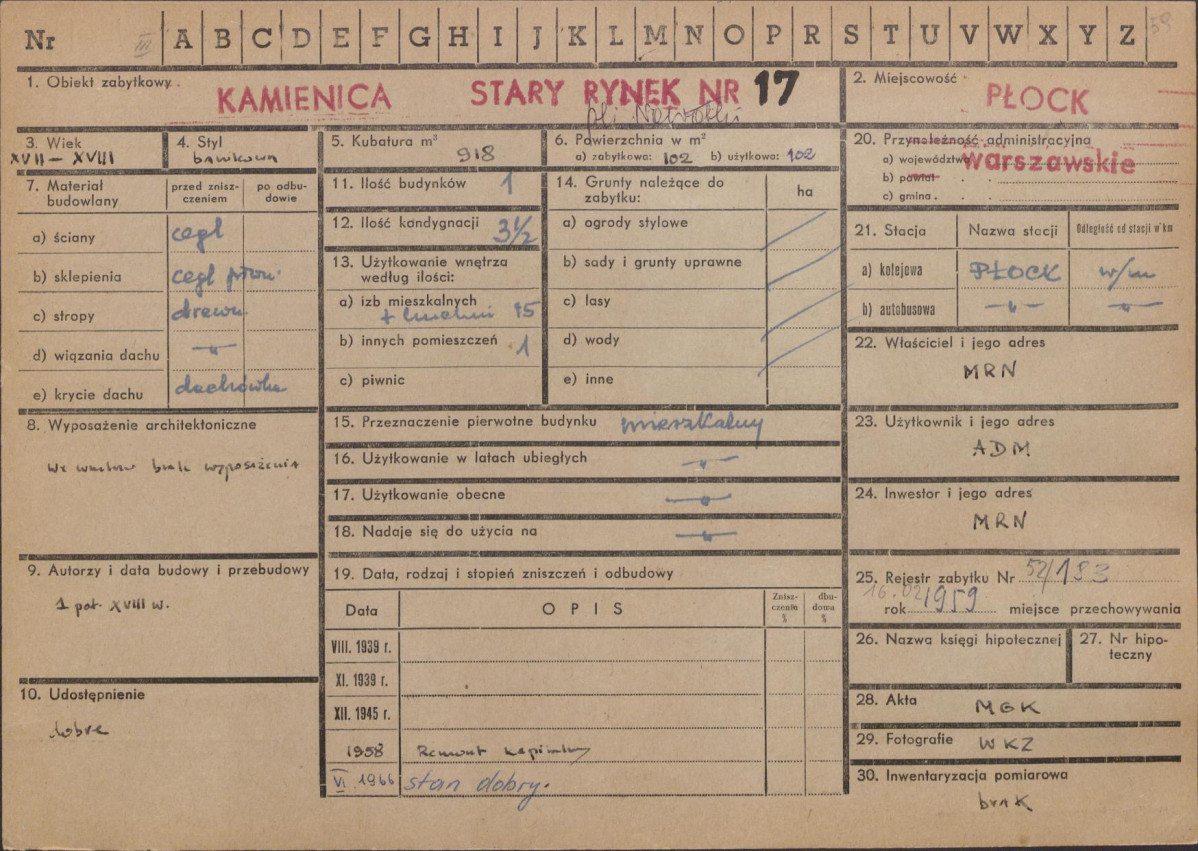 Nr III A B C D E F G H I J K L M N O P R S T U V W X Y Z
1. Obiekt zabytkowy
KAMIENICA STARY RYNEK NR 17
2. Miejscowość
PŁOCK
3. Wiek
XVII – XVIII
4. Styl
barokowa
5. Kubatura m³
918
6. Powierzchnia w m²
a) zabytkowa: 102 b) użytkowa: 102
7. Materiał budowlany
przed zniszczeniem
po odbudowie
a) ściany cegl
b) sklepienia cegl piwn.
c) stropy drewn.
d) wiązania dachu —"—
e) krycie dachu dachówka
8. Wyposażenie architektoniczne
brak wyposażenia
9. Autorzy i data budowy i przebudowy
1 poł. XVIII w.
10. Udostępnienie
dobre
11. Ilość budynków 1
12. Ilość kondygnacji 3½
13. Użytkowanie wnętrza
według ilości:
a) izb mieszkalnych
+ kuchni 15
b) innych pomieszczeń 1
c) piwnic
14. Grunty należące do
zabytku:
ha
a) ogrody stylowe
b) sady i grunty uprawne
c) lasy
d) wody
e) inne
15. Przeznaczenie pierwotne budynku mieszkalny
16. Użytkowanie w latach ubiegłych —"—
17. Użytkowanie obecne —"—
18. Nadaje się do użycia na —"—
19. Data, rodzaj i stopień zniszczeń i odbudowy
Data
OPIS
Zniszczenia %
dbudowa %
VIII. 1939 r.
XI. 1939 r.
XII. 1945 r.
1958 Remont kapitalny
VI 1966 stan dobry.
20. Przynależność administracyjna
a) województwo Warszawskie
b) powiat
c) gmina
21. Stacja
Nazwa stacji
Odległość od stacji w km
a) kolejowa PŁOCK w/m
b) autobusowa —"— —"—
22. Właściciel i jego adres
MRN
23. Użytkownik i jego adres
ADM
24. Inwestor i jego adres
MRN
25. Rejestr zabytku Nr 52/183
16.02 rok 1959 miejsce przechowywania
26. Nazwa księgi hipotecznej
27. Nr hipoteczny
28. Akta MGK
29. Fotografie WKZ
30. Inwentaryzacja pomiarowa
brak